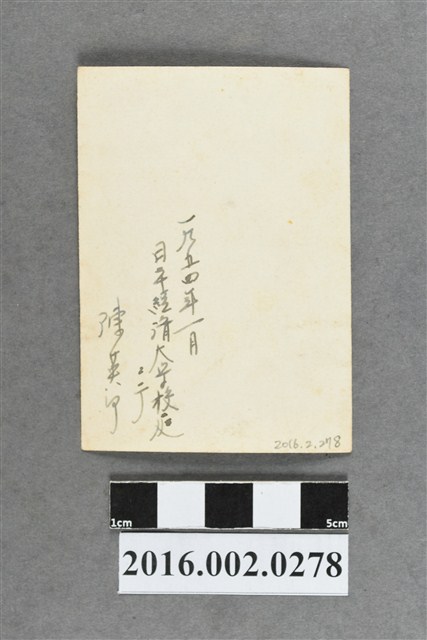 一九五四年一月
日本經濟大学校庭
ニテ
陳英
2016.2.278
1cm
5cm
2016.002.0278